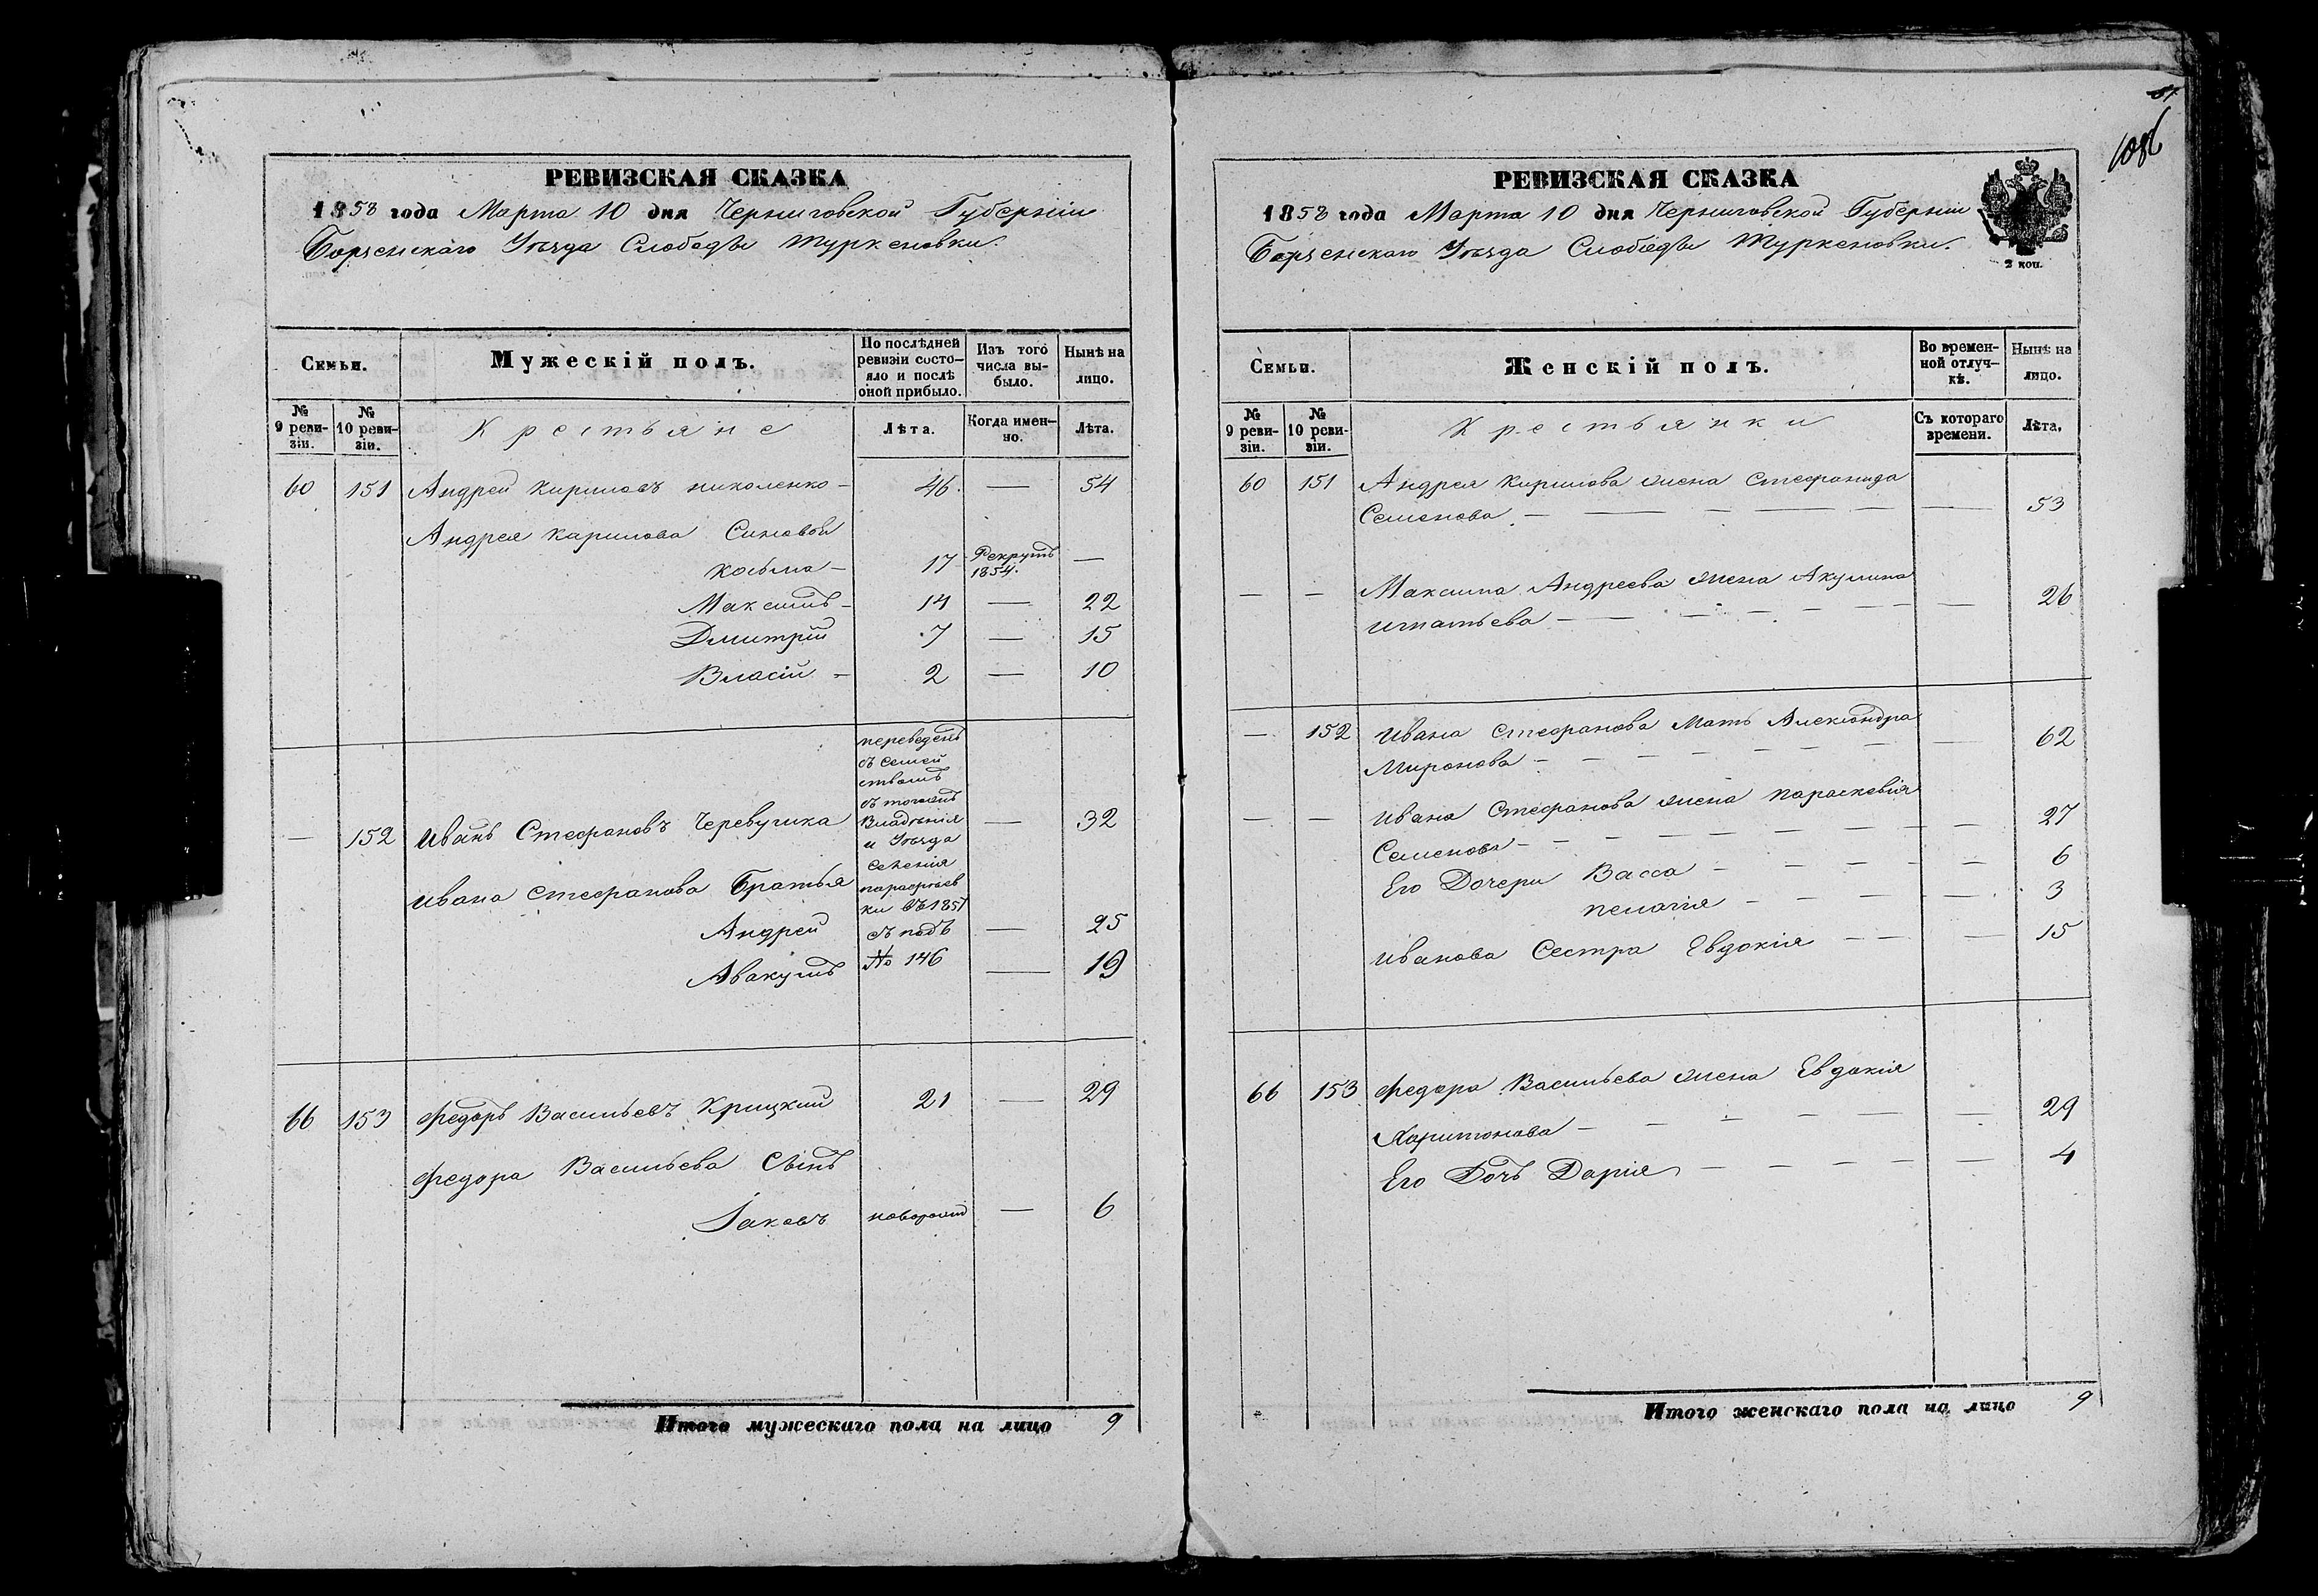 РЕВИЗСКАЯ СКАЗКА
1858 года Марта 10 дня Черниговской Губерніи
Борзенскаго Уѣзда Слободы Шуркеновки.
Семьи.
Мужескій полъ.
По послѣдней ревизіи состо-
яло и послѣ
оной прибыло.
Изъ того
числа вы-
было.
Нынѣ на
лицо.
№
9 реви-
зіи.
№
10 реви-
зіи.
Крестьяне
Лѣта.
Когда имен-
но.
Лѣта.
60 151 Андрей Кириловъ Николенко – 46. — 54
Андрея Карилова Синовья
Косьма – 17 Рекрутъ
1854. —
Максимъ – 14 — 22
Дмитрій 7 — 15
Власій – 2 — 10
переведенъ
съ семей
ствомъ
съ тогожъ
Владѣнія
и Уѣзда
селенія
парафіев
ки въ 1851
съ подъ
№ 146
— 152 Иванъ Стефановъ Черевучика — 32
Ивана Стефанова Братья
Андрей — 25
Авакумъ — 19
66 153 Федоръ Васильевъ Крицкий 21 — 29
Федора Васильева Сынъ
Іаковъ новорожд — 6
Итого мужескаго пола на лицо 9
51
1086
РЕВИЗСКАЯ СКАЗКА
1858 года Марта 10 дня Черниговской Губерніи
Борзенскаго Уѣзда Слободы Шуркеновки.
2 коп.
Семьи.
Женскій полъ.
Во времен-
ной отлуч-
кѣ.
Нынѣ на
лицо.
№
9 реви-
зіи.
№
10 реви-
зіи.
Крестьянки
Съ котораго
времени.
Лѣта.
60 151 Андрея Кирилова жена Стефанида
Семенова – — – — – — 53
— – Максима Андреева жена Акулина
Игнатьева – — – — 26
— 152 Ивана Стефанова Мать Александра
Миронова – — – — 62
— — Ивана Стефанова жена Параскевія
Семенова – — – — 27
Его Дочери Васса – — – — 6
Пелагія – — – — 3
Иванова Сестра Евдокія – — — 15
66 153 Федора Васильева жена Евдокія
Харитонова – — – — 29
Его Дочь Дарія – — – — 4
Итого женскаго пола на лицо 9